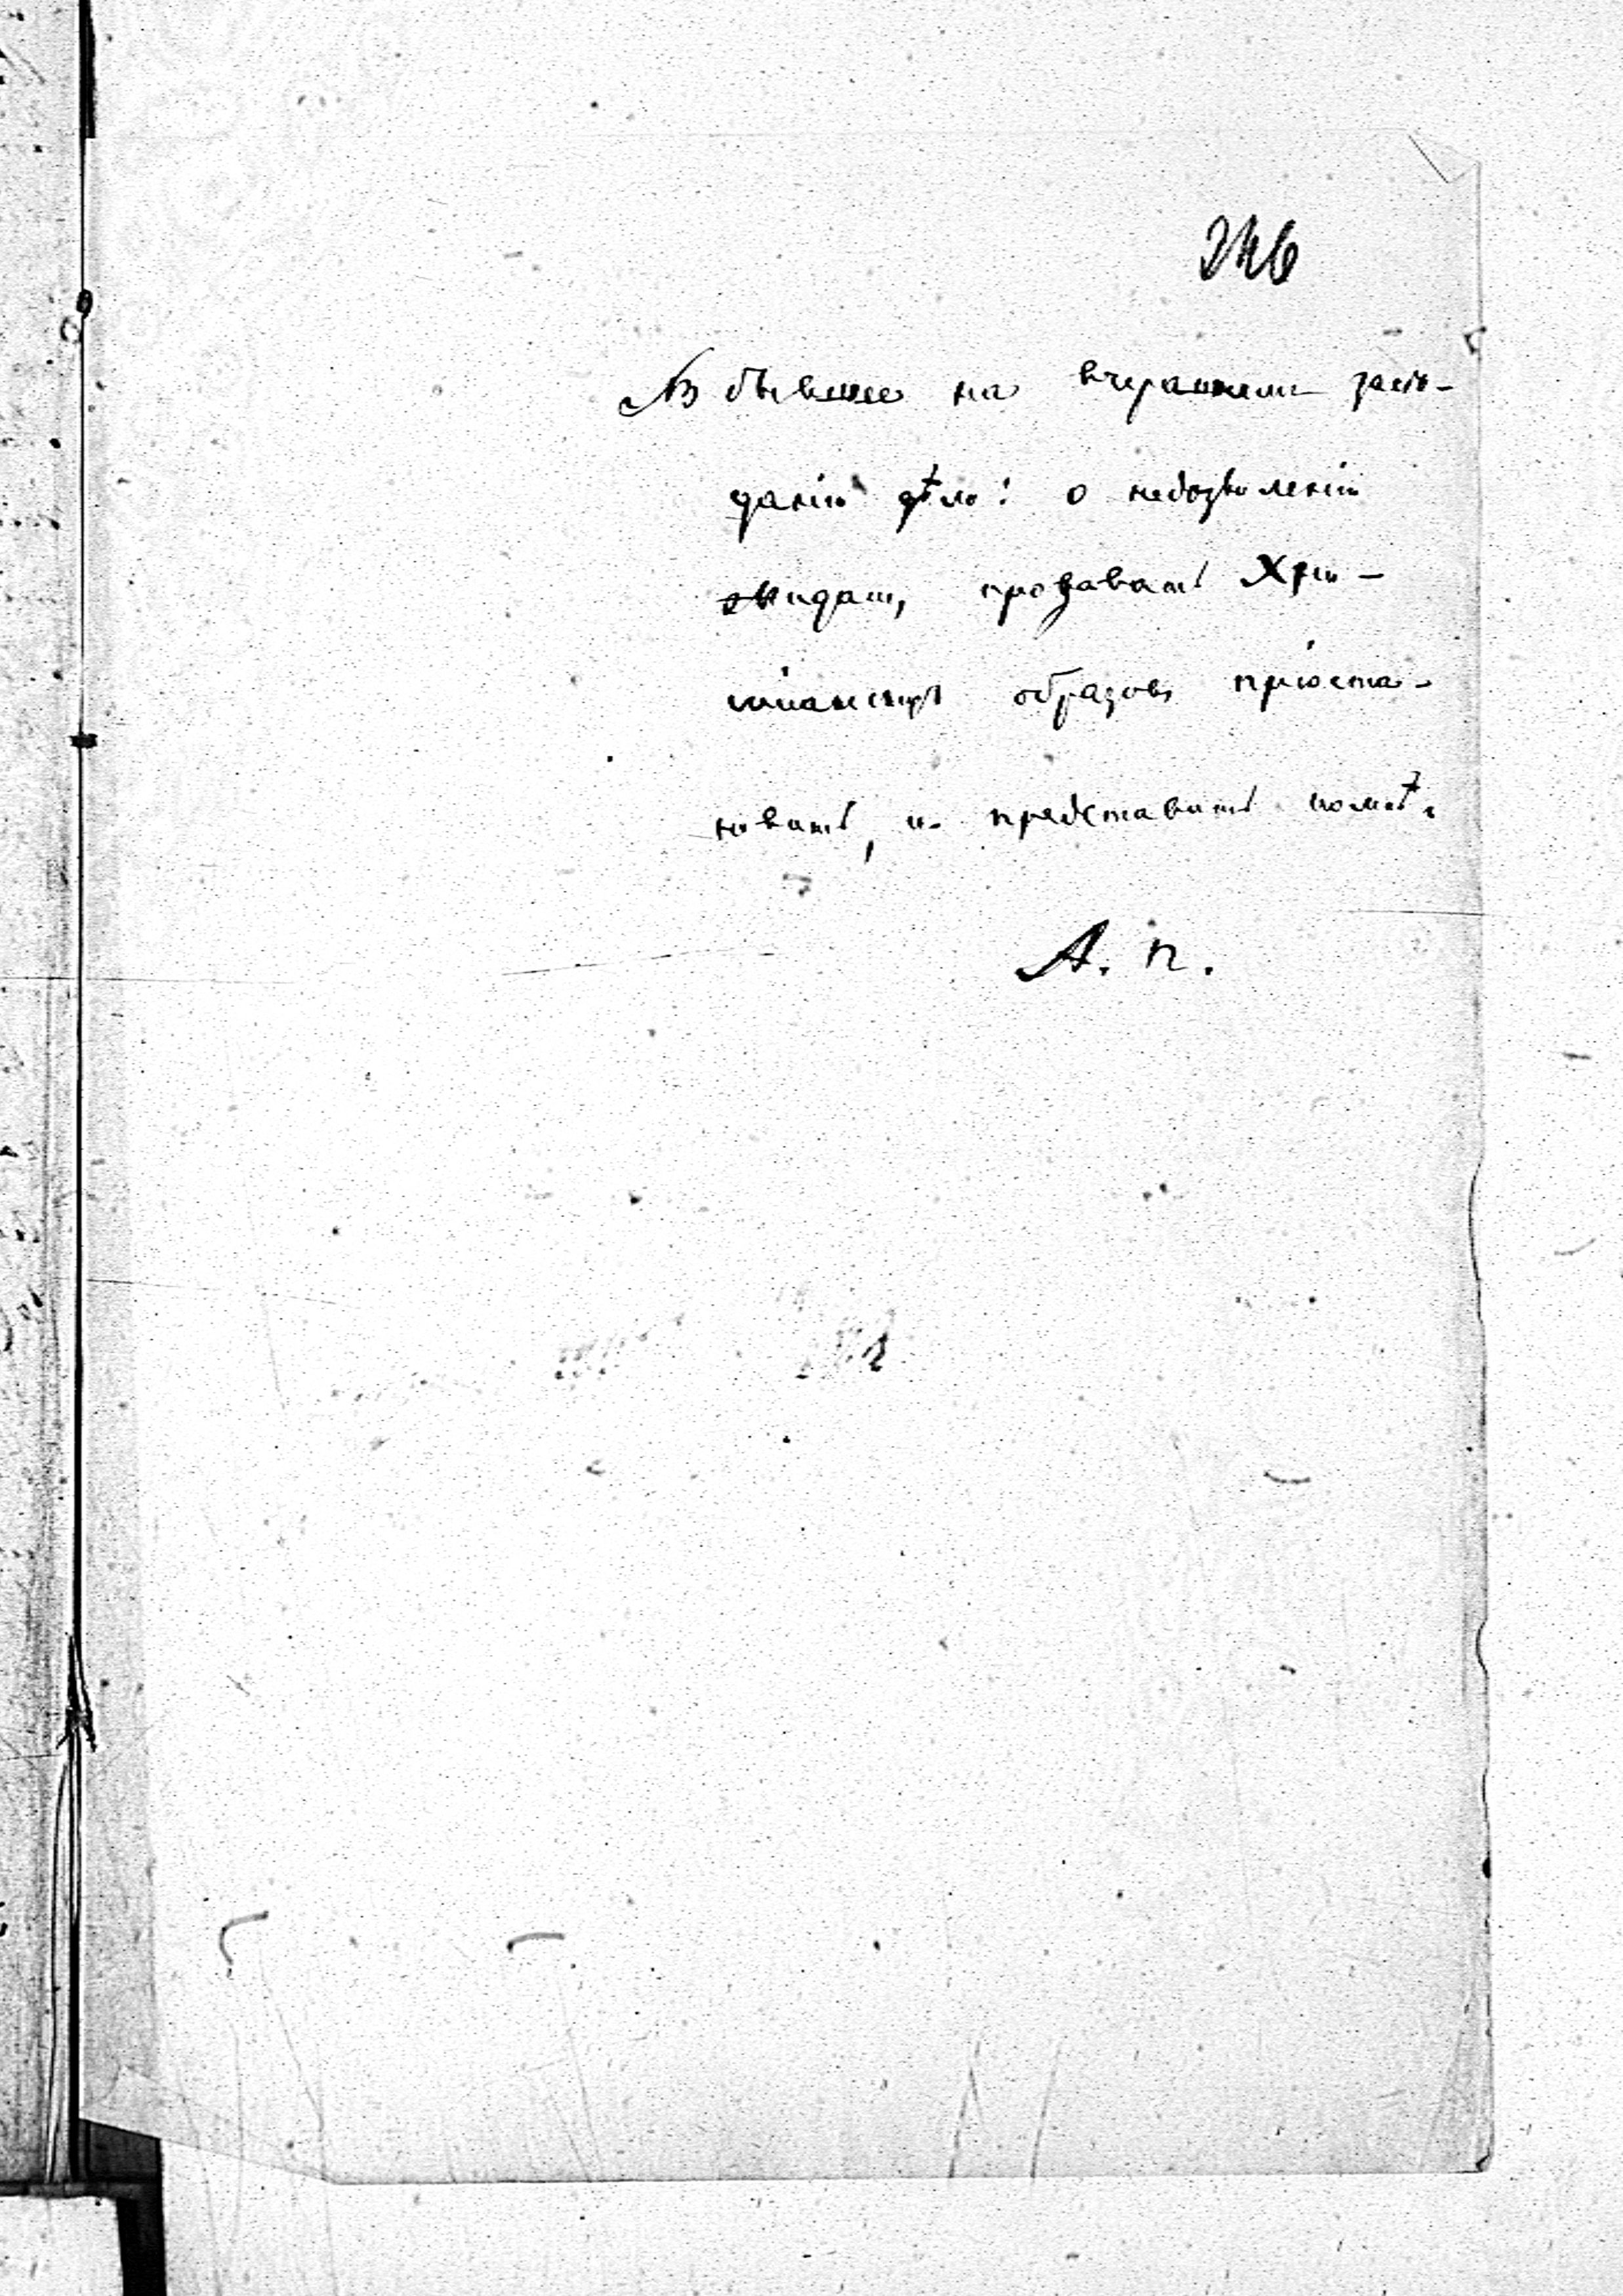 246
NB бывшее на вчерашнемъ засѣ-
данiи дѣло: о недозволенiи
жидамъ продавать Хри-
стiанскихъ образовъ прiоста-
новить, и представить ко мнѣ.
А. П.